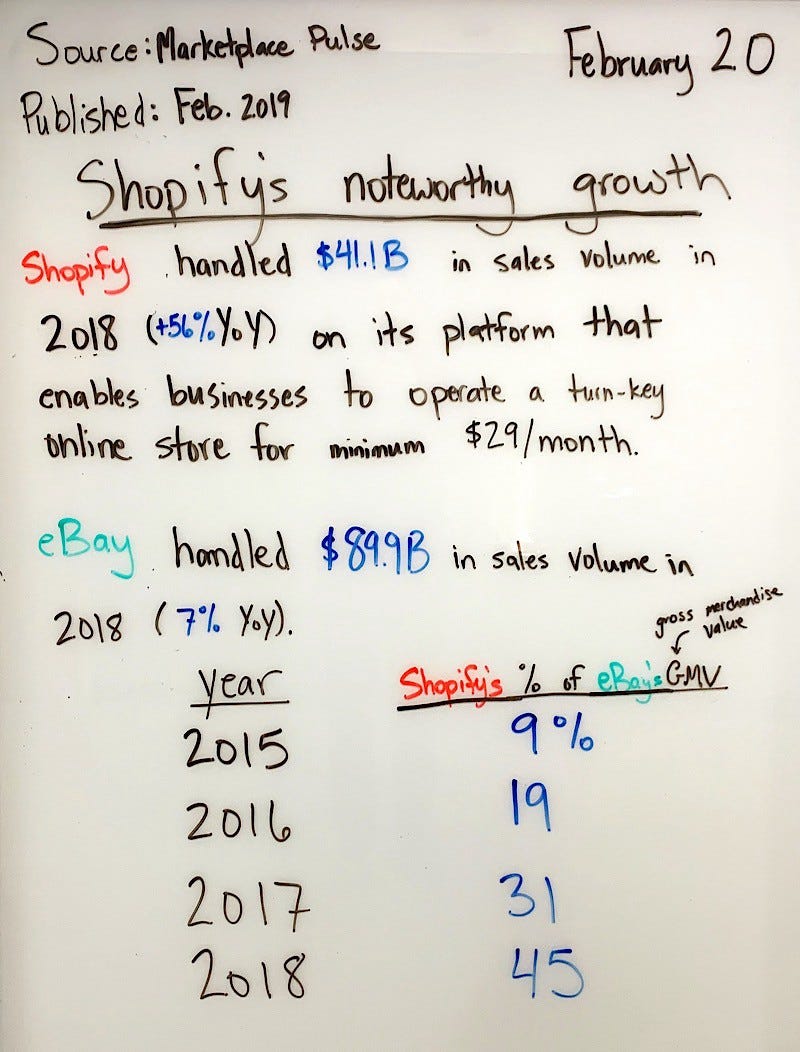 Source: Marketplace Pulse
February 20
Published: Feb. 2019
Shopify's noteworthy growth
Shopify handled $41.1B in sales volume in
2018 (+56% YoY) on its platform that
enables businesses to operate a turn-key
online store for minimum $29/month.
eBay handled $89.9B in sales volume in
2018 (7% YoY).
gross merchandise
value
year Shopify's % of eBay's GMV
2015 9%
2016 19
2017 31
2018 45